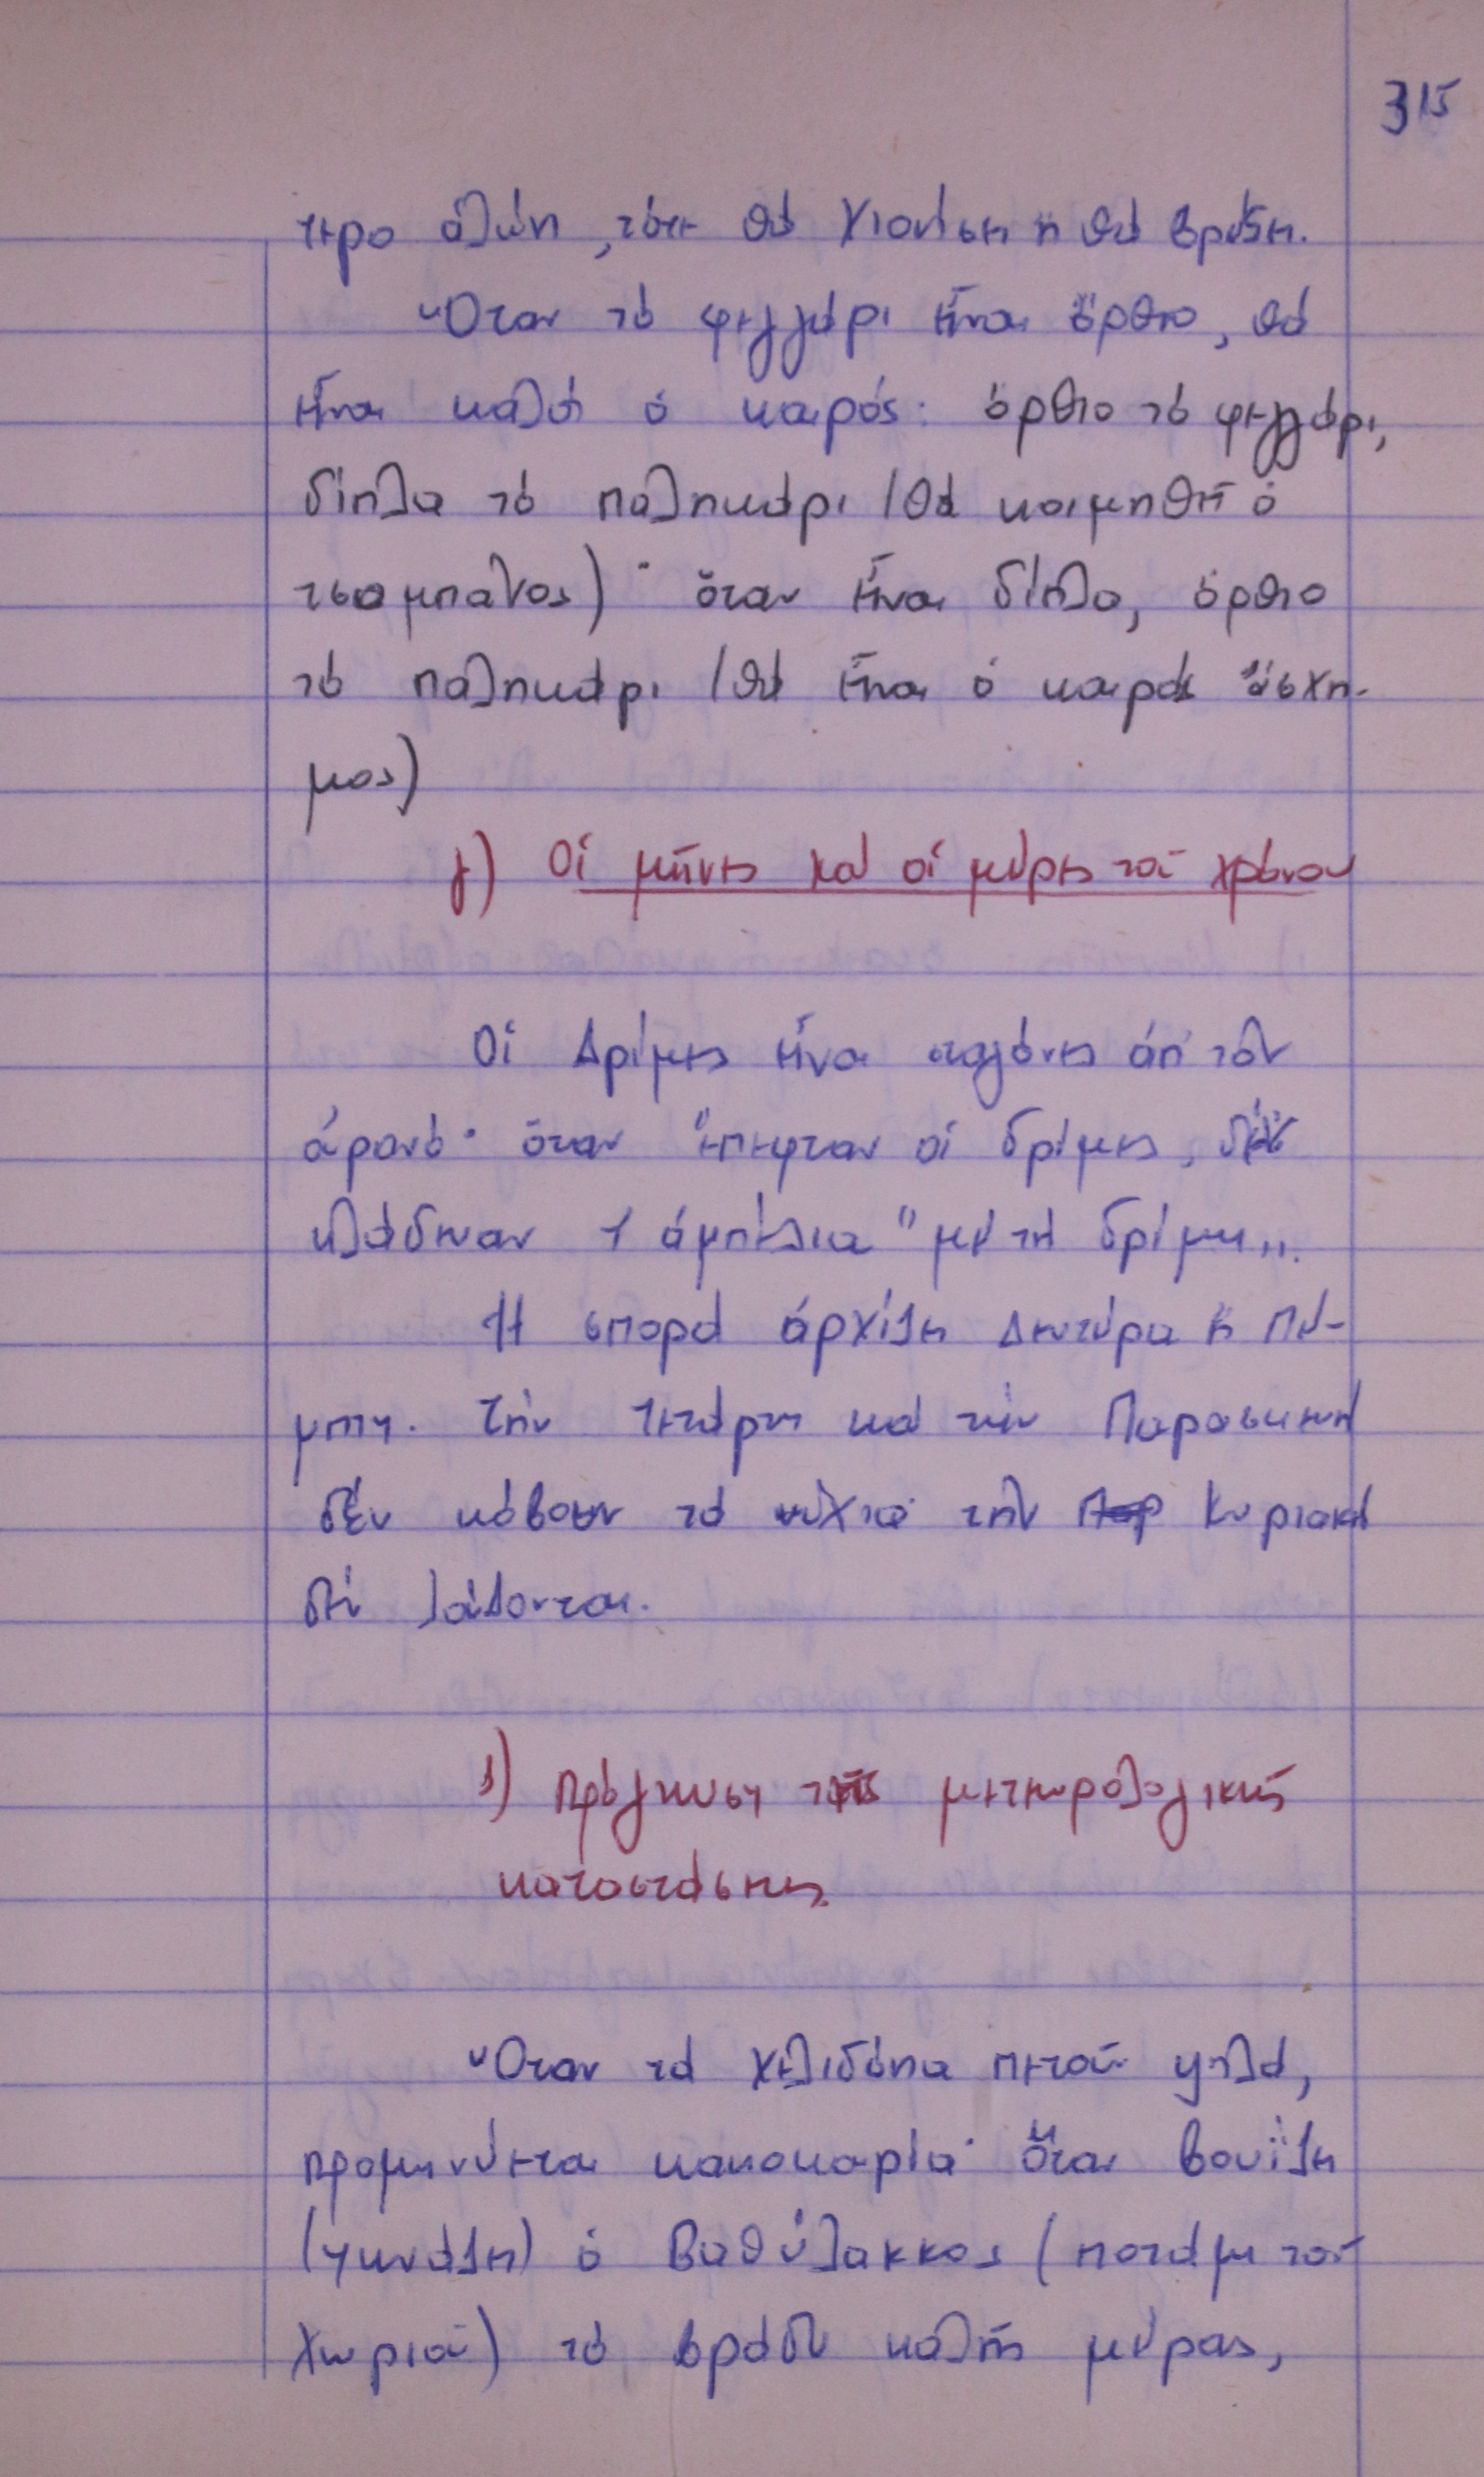 315
τερο ἁλώνι, τότε θά χιονίση ἤ θά βρέξη.
Ὅταν τό φεγγάρι εἶναι ὄρθιο, θά
εἶναι καλός ὁ καιρός: ὄρθιο τό φεγγάρι,
δίπλα τό παληκάρι (θά κοιμηθῆ ὁ
τσομπάνος)· ὅταν εἶναι δίπλα, ὄρθιο
τό παληκάρι (θά εἶναι ὁ καιρός ἄσχη-
μος)
γ) Οἱ μῆνες καί οἱ μέρες τοῦ χρόνου
Οἱ Δρίμες εἶναι σταγόνες ἀπ' τόν
ἀρανό· ὅταν ἔπεφταν οἱ δρίμες, δέν
κλάδευαν τ' ἀμπέλια "μέ τή δρίμη".
Ἡ σπορά ἀρχίζει Δευτέρα ἤ Πέ-
μπτη. Τήν Τετάρτη καί τήν Παρασκευή
δέν κόβουν τά νύχια· τήν Παρ Κυριακή
δέν λούζονται.
δ) Πρόγνωση τῆς μετεωρολογικῆς
καταστάσεως.
Ὅταν τά χελιδόνια πετοῦν ψηλά,
προμηνύεται κακοκαιρία· ὅταν βουΐζη
(φωνάζη) ὁ Βαθύλακκος (ποτάμι τοῦ
χωριοῦ) τό βράδυ καλῆς μέρας,